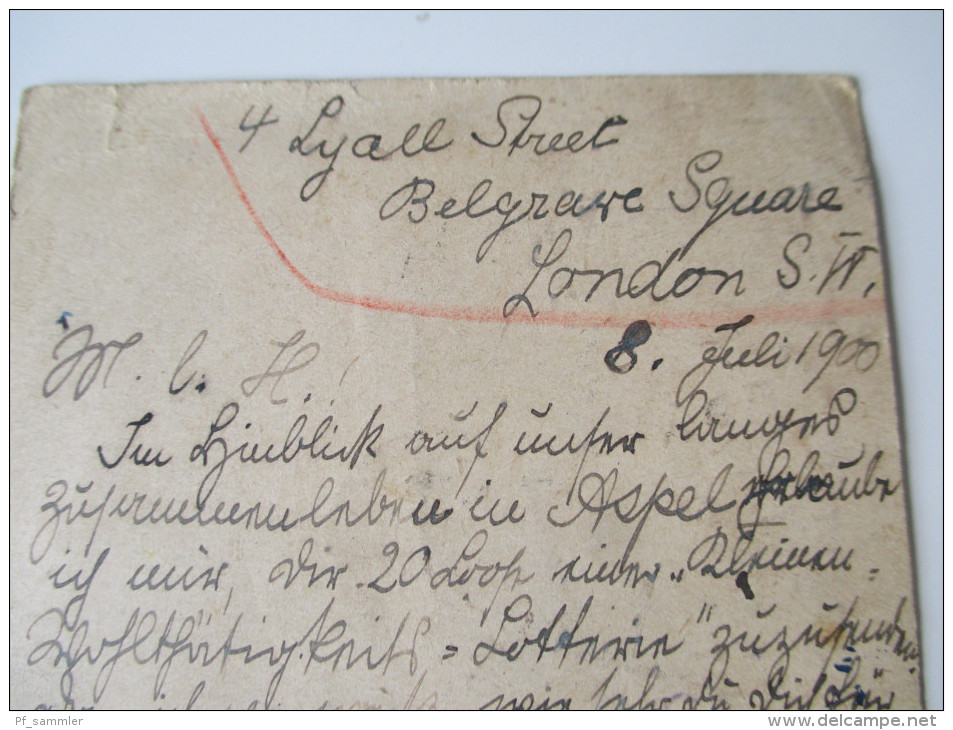 4 Lyall Street
Belgrave Square
London S.W.
8. Juli 1900
M. l. H.!
Im Hinblick auf unser langes
Zusammenleben in Aspel erlaube
ich mir, Dir 20 Loose einer „Kleinen=
Wohlthätigkeits=Lotterie" zuzusenden.
wie sehr du Dich für
Pf_sammler
www.delcampe.net